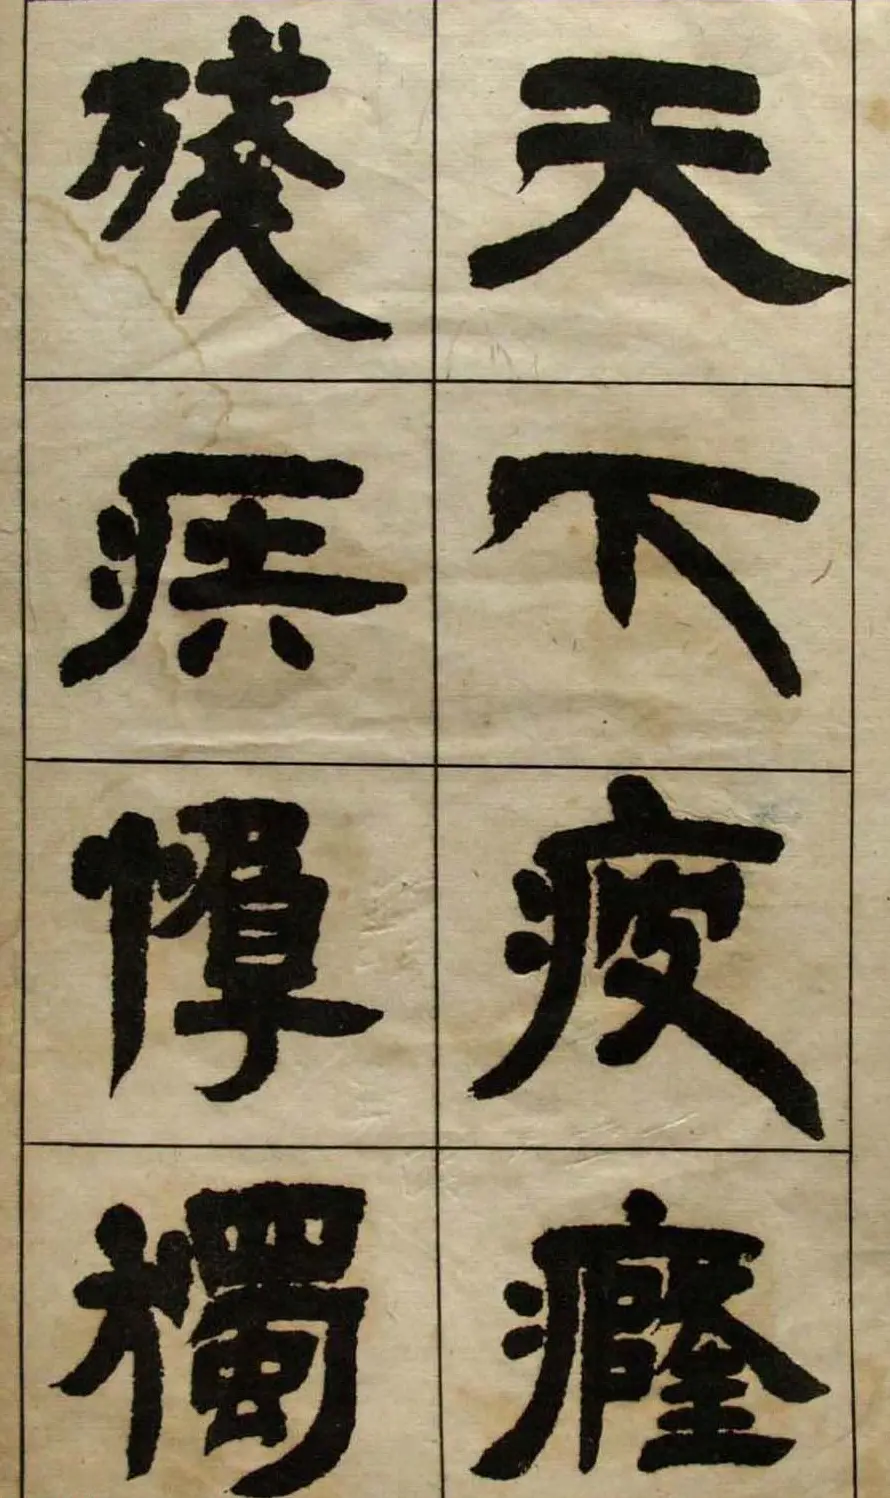 天下疲癃
殘疾惸獨